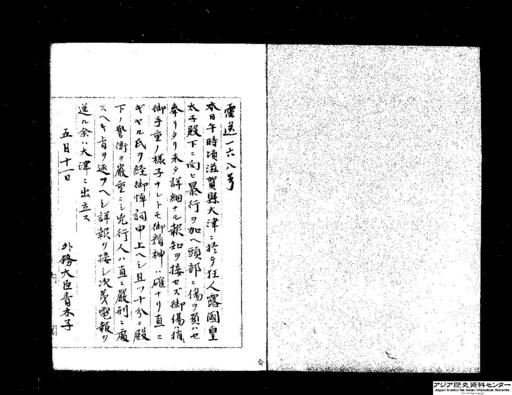 電送一六八号
本日午時頃滋賀縣大津ニ於テ狂人露國皇
太子殿下ニ向ヒ暴行ヲ加ヘ頭部ニ傷ヲ負ハセ
奉リタリ未タ詳細ナル報知ヲ接セズ御傷ハ稍
御手重ノ様子ナレトモ御精神ハ確ナリ直ニ
ギヤル氏ヲ経御悼詞申上ヘシ且ツ十分ニ殿
下ノ警衛ヲ厳重ニシ兇行人ハ直ニ厳刑ニ處
スヘキ旨ヲ述フヘシ詳報ヲ接シ次第電報ヲ
送ル余ハ大津ニ出立ス
五月十一日
外務大臣青木子
アジア歴史資料センター
Japan Center for Asian Historical Records